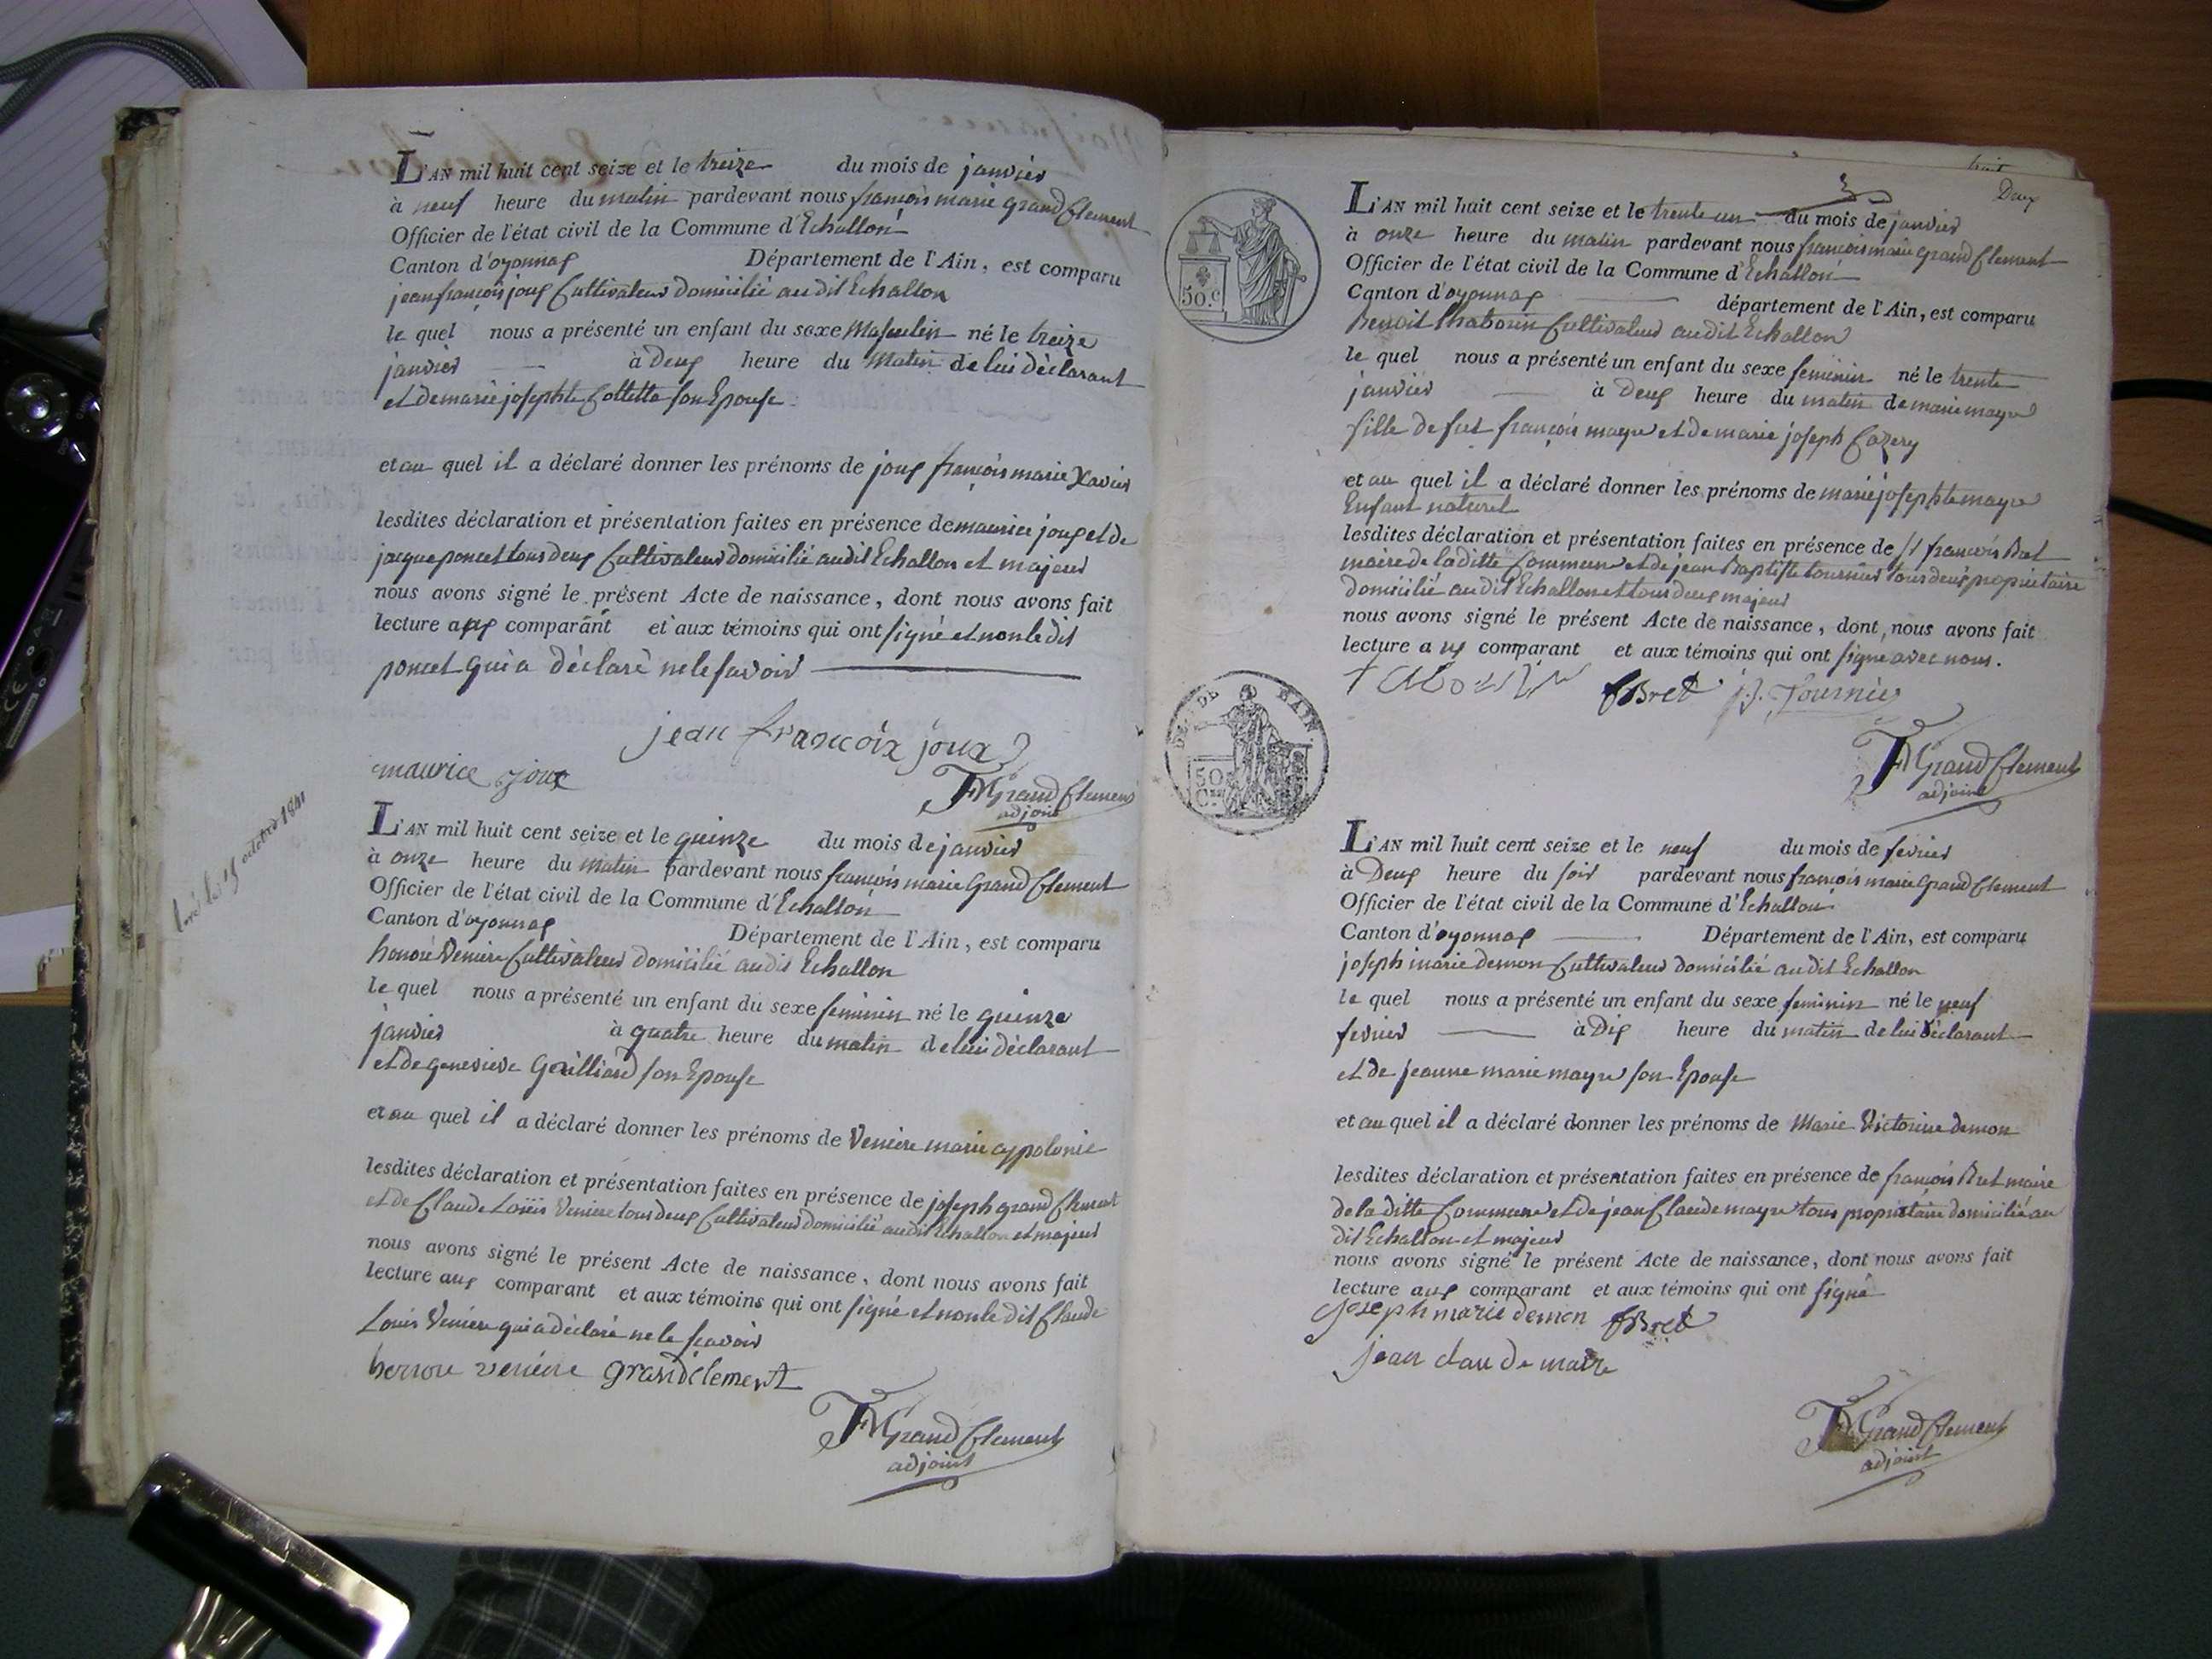 L'AN mil huit cent seize et le treize du mois de janvier
à neuf heure du matin pardevant nous françois marie grand Clement
Officier de l'état civil de la Commune d'Echallon
Canton d'oyonnax Département de l'Ain, est comparu
jean françois joux Cultivateur domicilié audit Echallon
le quel nous a présenté un enfant du sexe Masculin né le treize
janvier à Deux heure du Matin de lui déclarant
et de marie josephte Collette son Epouse
et au quel il a déclaré donner les prénoms de joux françois marie Xavier
lesdites déclaration et présentation faites en présence de maurice joux et de
jacque poncet tous deux Cultivateur domicilié audit Echallon et majeur
nous avons signé le présent Acte de naissance, dont nous avons fait
lecture aux comparant et aux témoins qui ont signé et non le dit
poncet qui a déclaré ne le savoir
jean francoix joux
maurice joux
FM Grand Clement
adjoint
L'AN mil huit cent seize et le quinze du mois de janvier
à onze heure du matin pardevant nous françois marie Grand Clement
Officier de l'état civil de la Commune d'Echallon
Canton d'oyonnax Département de l'Ain, est comparu
honoré Veniere Cultivateur domicilié audit Echallon
le quel nous a présenté un enfant du sexe feminin né le quinze
janvier à quatre heure du matin de lui déclarant
et de genevieve Gailliard son Epouse
et au quel il a déclaré donner les prénoms de Veniere marie appolonie
lesdites déclaration et présentation faites en présence de joseph grand Clement
et de Claude Louis Veniere tous deux Cultivateur domicilié audit Echallon et majeur
nous avons signé le présent Acte de naissance, dont nous avons fait
lecture aux comparant et aux témoins qui ont signé et non le dit Claude
Louis Veniere qui a déclaré ne le scavoir
honore veniere grandclement
FM Grand Clement
adjoint
le 15 octobre 1841
Deux
50.c
L'AN mil huit cent seize et le trente un du mois de janvier
à onze heure du matin pardevant nous françois marie grand Clement
Officier de l'état civil de la Commune d'Echallon
Canton d'oyonnax département de l'Ain, est comparu
Benoit Chatourin Cultivateur audit Echallon
le quel nous a présenté un enfant du sexe feminin né le trente
janvier à Deux heure du matin de marie mayre
fille de fut françois mayre et de marie joseph Cazery
et au quel il a déclaré donner les prénoms de marie josephte mayre
Enfant naturel
lesdites déclaration et présentation faites en présence de Sr françois Bret
maire de la ditte Commune et de jean Baptiste tournier tous deux propriétaire
domicilié audit Echallon et tous deux majeur
nous avons signé le présent Acte de naissance, dont nous avons fait
lecture a ux comparant et aux témoins qui ont signé avec nous.
fBret j.B. Tournier
FM Grand Clement
adjoint
DEP. DE L'AIN
50 Cen
L'AN mil huit cent seize et le neuf du mois de fevrier
à Deux heure du soir pardevant nous françois marie Grand Clement
Officier de l'état civil de la Commune d'Echallon
Canton d'oyonnax Département de l'Ain, est comparu
joseph marie demon Cultivateur domicilié audit Echallon
le quel nous a présenté un enfant du sexe feminin né le neuf
fevrier à Dix heure du matin de lui déclarant
et de jeanne marie mayre son Epouse
et au quel il a déclaré donner les prénoms de Marie Victorine demon
lesdites déclaration et présentation faites en présence de françois Bret maire
de la ditte Commune et de jean Claude mayre tous propriétaire domicilié au
dit Echallon et majeur
nous avons signé le présent Acte de naissance, dont nous avons fait
lecture aux comparant et aux témoins qui ont signé
joseph marie demon fBret
jean claude maire
FM Grand Clement
adjoint